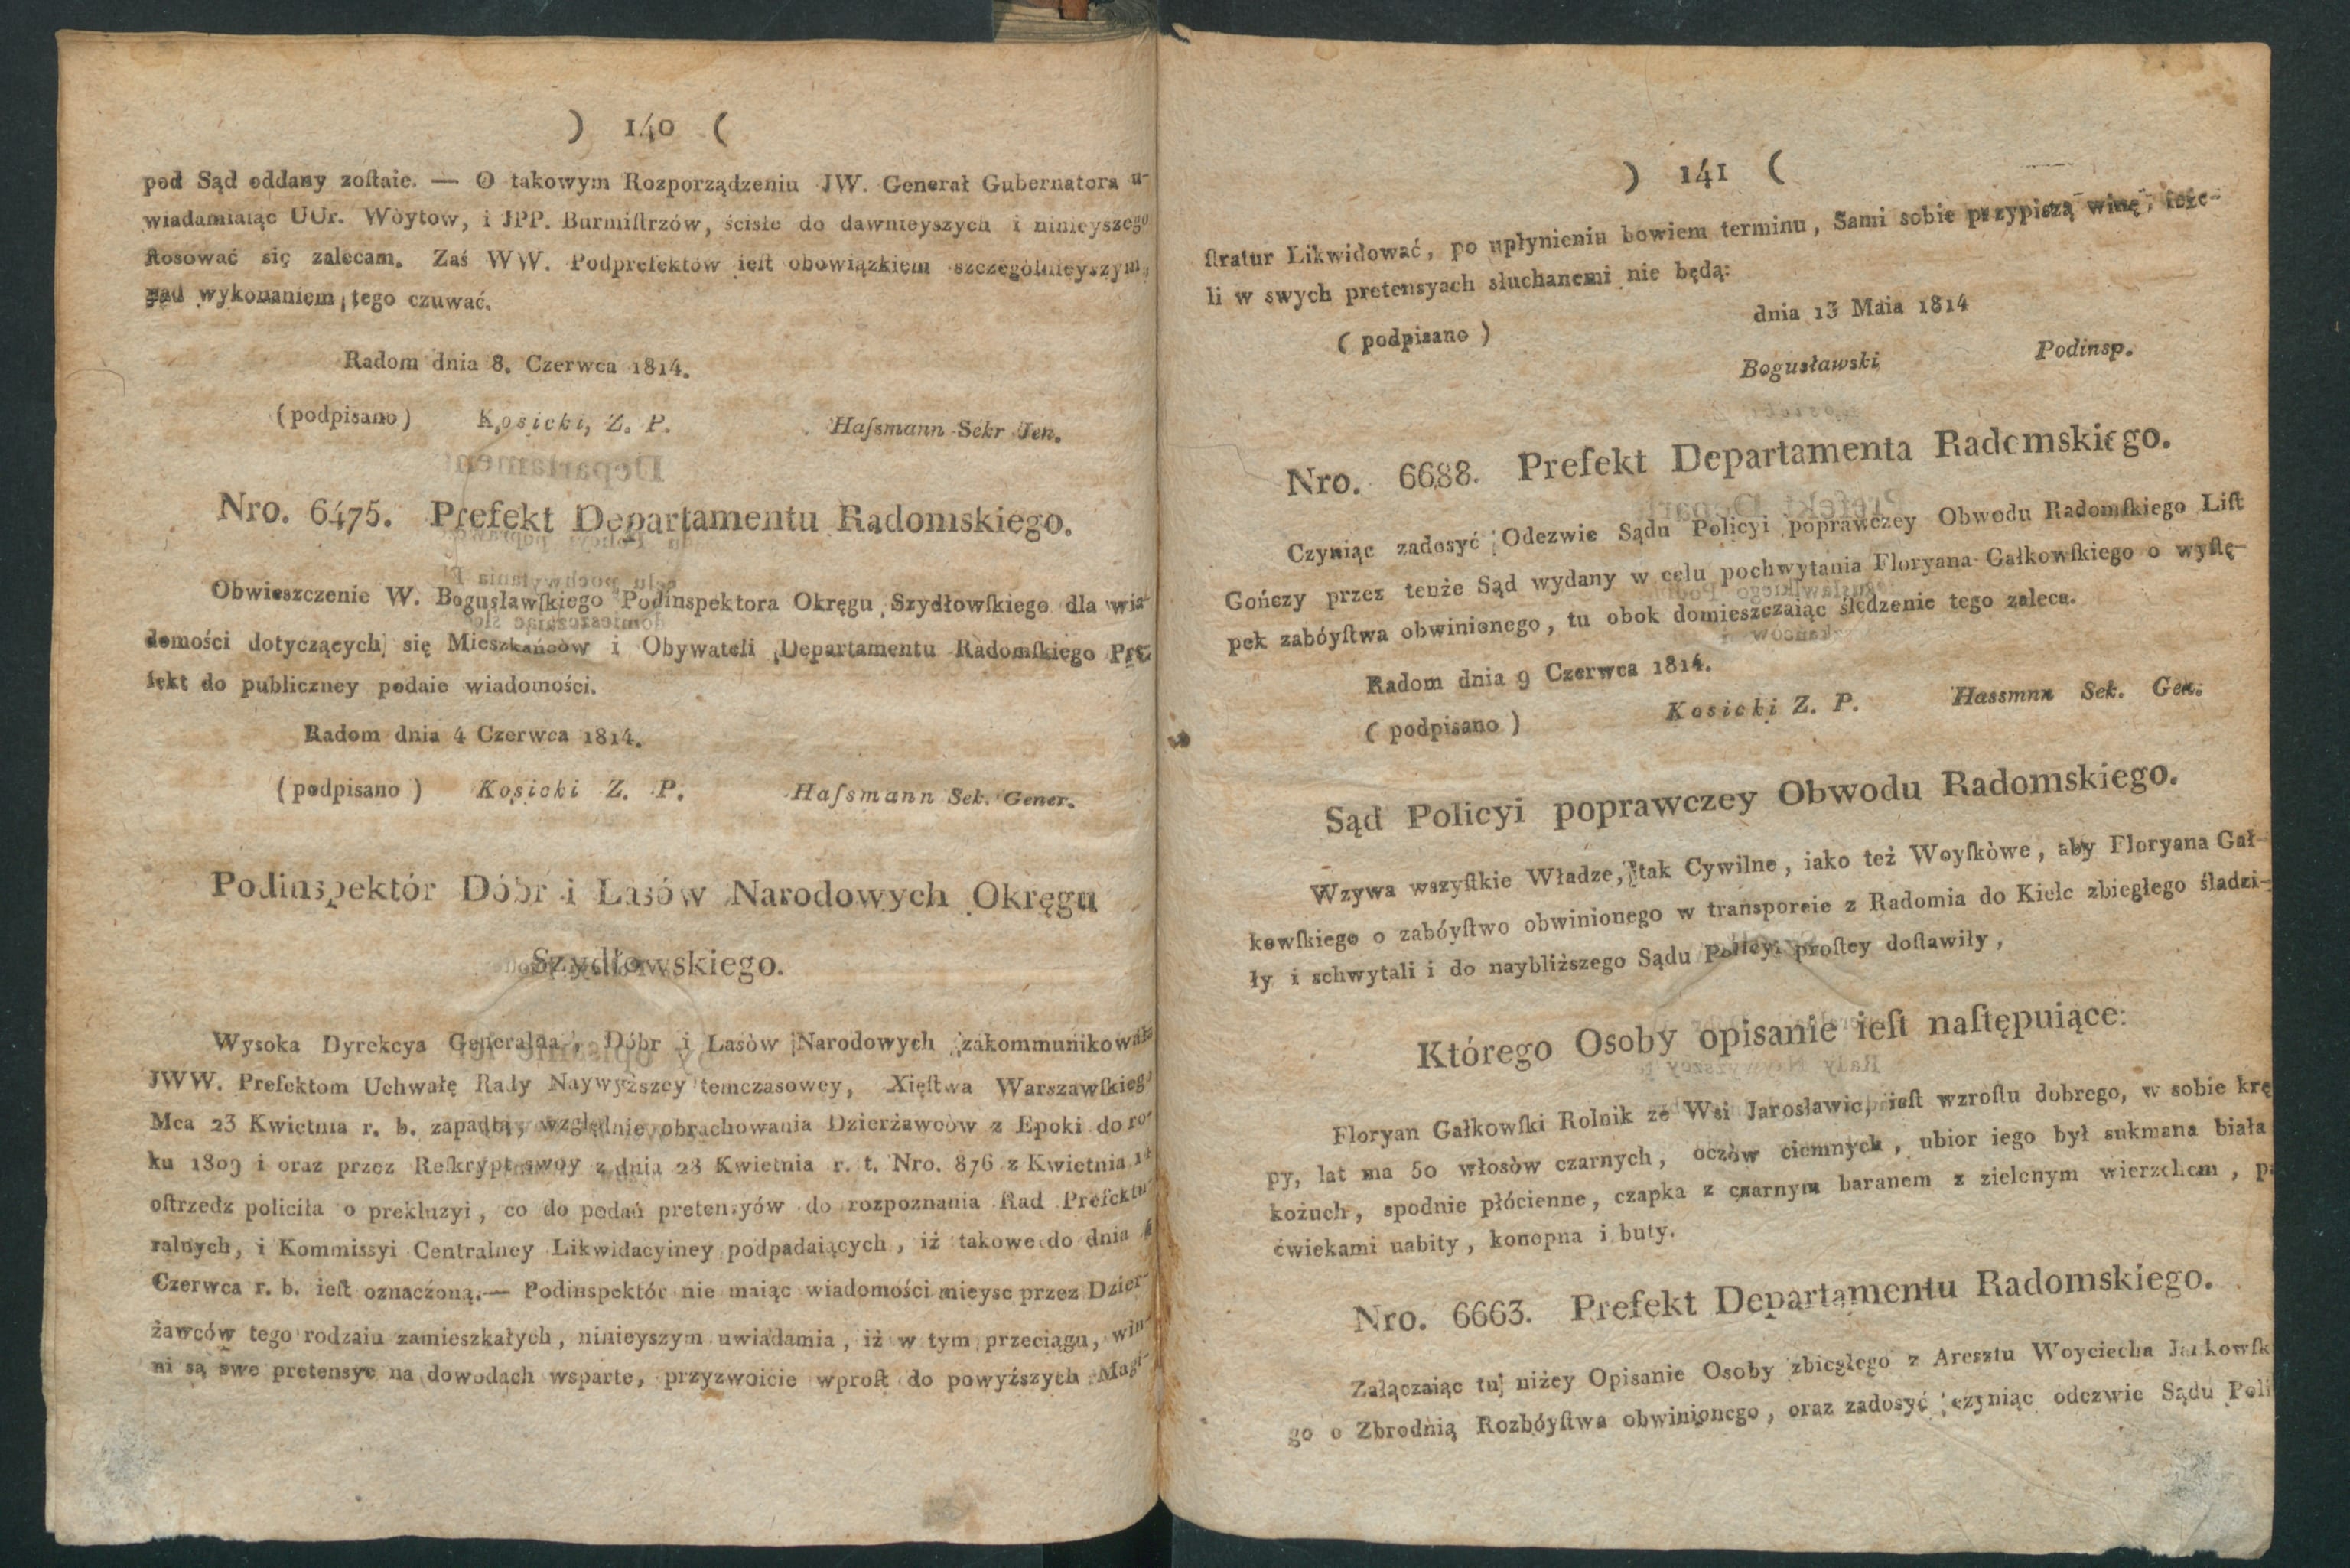 ) 140 (
pod Sąd oddany zoſtaie. — O takowym Rozporządzeniu JW. Generał Gubernatora u-
wiadamiaiąc UUr. Wóytow, i JPP. Burmiſtrzów, ściśle do dawnieyszych i ninieyszego
ſtosować się zalecam. Zaś WW. Podprefektów ieſt obowiązkiem szczególnieyszym,
nad wykonaniem tego czuwać.
Radom dnia 8. Czerwca 1814.
(podpisano) Kosicki, Z. P. Haſsmann Sekr Jen.
Nro. 6475. Prefekt Departamentu Radomskiego.
Obwieszczenie W. Bogusławſkiego Podinspektora Okręgu Szydłowſkiego dla wia-
domości dotyczących się Mieszkańców i Obywateli Departamentu Radomſkiego Pre-
fekt do publiczney podaie wiadomości.
Radom dnia 4 Czerwca 1814.
(podpisano) Kosicki Z. P. Haſsmann Sek. Gener.
Podinspektór Dóbr i Lasów Narodowych Okręgu
Szydłowskiego.
Wysoka Dyrekcya Generalna, Dóbr i Lasòw Narodowych zakommunikowała
JWW. Prefektom Uchwałę Rady Naywyższey temczasowey, Xięſtwa Warszawſkiego
Mca 23 Kwietnia r. b. zapadłą, względnie obrachowania Dzierżawcòw z Epoki do ro-
ku 1809 i oraz przez Reſkrypt swoy z dnia 28 Kwietnia r. t. Nro. 876 z Kwietnia
oſtrzedz policiła o prekluzyi, co do podań pretensyów do rozpoznania Rad Prefektu-
ralnych, i Kommissyi Centralney Likwidacyiney podpadaiących, iż takowe do dnia
Czerwca r. b. ieſt oznaczoną.— Podinspektór nie maiąc wiadomości mieysc przez Dzier-
żawców tego rodzaiu zamieszkałych, ninieyszym uwiadamia, iż w tym przeciągu, win-
ni są swe pretensye na dowodach wsparte, przyzwoicie wproſt do powyższych Magi-
) 141 (
ſtratur Likwidować, po upłynieniu bowiem terminu, Sami sobie przypiszą winę, ieże-
li w swych pretensyach słuchanemi nie będą:
dnia 13 Maia 1814
(podpisano)
Bogusławski Podinsp.
Nro. 6688. Prefekt Departamenta Radomskiego.
Czyniąc zadosyć Odezwie Sądu Policyi poprawczey Obwodu Radomſkiego Liſt
Gończy przez tenże Sąd wydany w celu pochwytania Floryana Gałkowſkiego o wyſtę-
pek zabóyſtwa obwinionego, tu obok domieszczaiąc śledzenie tego zaleca.
Radom dnia 9 Czerwca 1814.
(podpisano) Kosicki Z. P. Hassmnn Sek. Gen.
Sąd Policyi poprawczey Obwodu Radomskiego.
Wzywa wszyſtkie Władze, tak Cywilne, iako też Woyſkòwe, aby Floryana Gał-
kowſkiego o zabóyſtwo obwinionego w transporcie z Radomia do Kielc zbiegłego śladzi-
ły i schwytali i do naybliższego Sądu Policyi proſtey doſtawiły,
Którego Osoby opisanie ieſt naſtępuiące:
Floryan Gałkowſki Rolnik ze Wsi Jarosławic, ieſt wzroſtu dobrego, w sobie krę
py, lat ma 50 włosòw czarnych, oczòw ciemnych, ubior iego był sukmana biała
kożuch, spodnie płócienne, czapka z czarnym baranem z zielonym wierzchem,
ćwiekami nabity, konopna i buty.
Nro. 6663. Prefekt Departamentu Radomskiego.
Załączaiąc tu niżey Opisanie Osoby zbiegłego z Aresztu Woyciecha
go o Zbrodnią Rozbóyſtwa obwinionego, oraz zadosyć czyniąc odezwie Sądu Poli